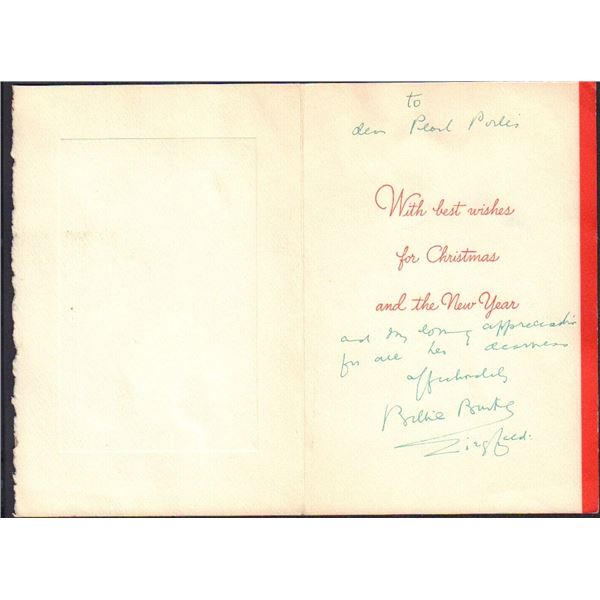 to
dear Pearl Porli's
With best wishes
for Christmas
and the New Year
and my loving appreciation
for all her dearness
affectionately
Billie Burke
Ziegfeld.